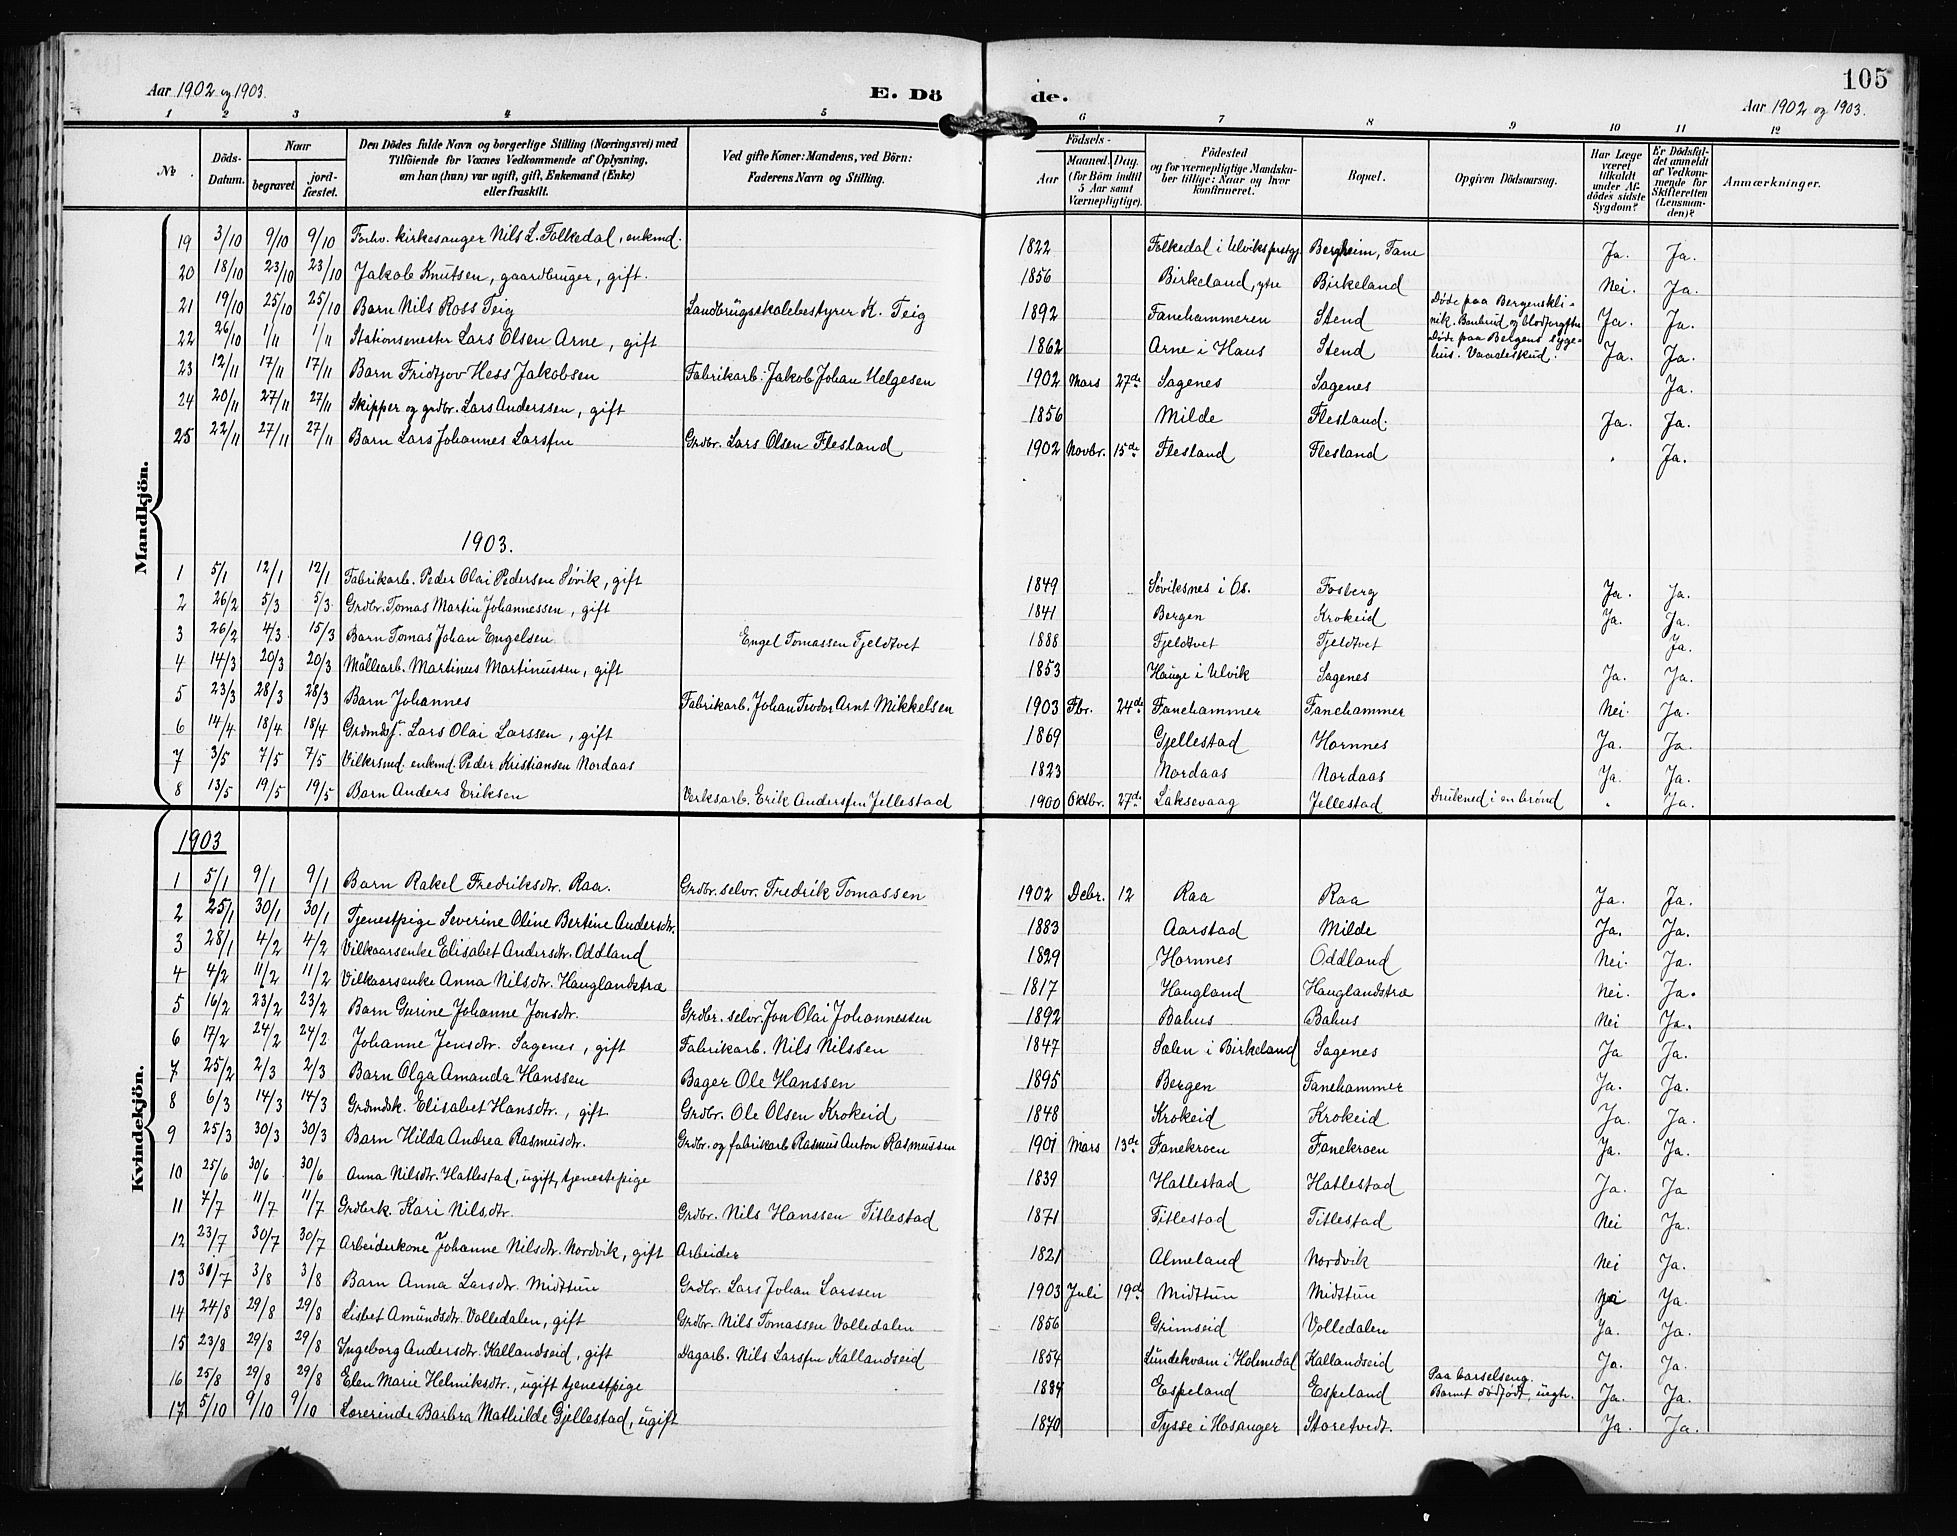 Aar 1902 og 1903.
E. Dö de.
105
Aar 1902 og 1903.
1 2 3 4 5 6 7 8 9 10 11 12
No
Döds-Datum.
Naar
begravet.
jord-fæstet.
Den Dödes fulde Navn og borgerlige Stilling (Næringsvei) med
Tilföiende for Voxnes Vedkommende af Oplysning,
om han (hun) var ugift, gift, Enkemand (Enke)
eller fraskilt.
Ved gifte Koner: Mandens, ved Börn:
Faderens Navn og Stilling.
Födsels-
Aar
Maaned. Dag.
(for Börn indtil
5 Aar samt
Værnepligtige).
Födested
og for værnepligtige Mandska-
ber tillige: Naar og hvor
konfirmeret.
Bopæl.
Opgiven Dödsaarsag.
Har Læge
været
tilkaldt
under Af-
dödes sidste
Sygdom?
Er Dödsfal-
det anmeldt
af Vedkom-
mende for
Skifteretten
(Lensman-
den)?
Anmærkninger.
Mandkjön.
19 3/10 9/10 9/10 Forhv. kirkesanger Nils L. Folkedal, enkmd. 1822 Folkedal i Ulviks prstgj. Bergheim, Fane Ja. Ja.
20 18/10 23/10 23/10 Jakob Knutsen, gaardbruger, gift. 1856 Birkeland, ytre Birkeland Nei. Ja.
21 19/10 25/10 25/10 Barn Nils Ross Teig Landbrugsskolebestyrer K. Teig 1892 Fanehammeren Stend Døde paa Bergenskli-
nik. Benbrud og blodforgiftn. Ja. Ja.
22 26/10 1/11 1/11 Stationsmester Lars Olsen Arne, gift 1862 Arne i Haus Stend Døde paa Bergens syge-
hus. Vaadeskud. Ja. Ja.
23 12/11 17/11 17/11 Barn Fridtjov Hess Jakobsen Fabrikarb. Jakob Johan Helgesen 1902 Mars 27de Sagenes Sagenes Ja.
24 20/11 27/11 27/11 Skipper og grdbr. Lars Anderssen, gift 1856 Milde Flesland. Ja. Ja.
25 22/11 27/11 27/11 Barn Lars Johannes Larssen Grdbr. Lars Olsen Flesland 1902 Novbr. 15de Flesland Flesland " Ja.
1903.
1 5/1 12/1 12/1 Fabrikarb. Peder Olai Pedersen Søvik, gift 1849 Søviksnes i Os. Fosberg Ja. Ja.
2 26/2 5/3 5/3 Grdbr. Tomas Martin Johannessen, gift 1841 Bergen Krokeid Ja. Ja.
3 26/2 4/3 15/3 Barn Tomas Johan Engelsen Engel Tomassen Fjeldtvet 1888 Fjeldtvet Fjeldtvet Ja.
4 14/3 20/3 20/3 Möllearb. Martinus Martinussen, gift 1853 Hauge i Ulvik Sagenes Ja. Ja.
5 23/3 28/3 28/3 Barn Johannes Fabrikarb. Johan Teodor Arnt Mikkelsen 1903 Fbr. 24de Fanehammer Fanehammer Nei. Ja.
6 14/4 18/4 18/4 Grdmdsf. Lars Olai Larssen, gift 1869 Gjellestad Hornnes Ja. Ja.
7 3/5 7/5 7/5 Vilkrsmd. enkmd. Peder Kristiansen Nordaas 1823 Nordaas Nordaas Ja. Ja.
8 13/5 19/5 19/5 Barn Anders Eriksen Verksarb. Erik Anderssen Jellestad 1900 Oktbr. 27de Laksevaag Jellestad Druknet i en brønd " Ja.
Kvindekjön.
1903
1 5/1 9/1 9/1 Barn Rakel Fredriksdtr. Raa. Grdbr. selvr. Fredrik Tomassen 1902 Debr. 12 Raa Raa Ja. Ja.
2 25/1 30/1 30/1 Tjenestpige Severine Oline Bertine Andersdtr. 1883 Aarstad Milde Ja. Ja.
3 28/1 4/2 4/2 Vilkaarsenke Elisabet Andersdtr. Oddland 1829 Hornnes Oddland Nei. Ja.
4 4/2 11/2 11/2 Vilkaarsenke Anna Nilsdtr. Hauglandstræ 1817 Haugland Hauglandstræ Nei. Ja.
5 16/2 23/2 23/2 Barn Gurine Johanne Jonsdtr. Grdbr. selvr. Jon Olai Johannessen 1892 Bahus Bahus Nei Ja.
6 17/2 24/2 24/2 Johanne Jensdtr. Sagenes, gift Fabrikarb. Nils Nilssen 1847 Sælen i Birkeland Sagenes Ja Ja.
7 25/2 2/3 2/3 Barn Olga Amanda Hanssen Bager Ole Hanssen 1895 Bergen Fanehammer Ja. Ja.
8 6/3 14/3 14/3 Grdmdsk. Elisabet Hansdtr., gift Grdbr. Ole Olsen Krokeid 1848 Krokeid Krokeid Ja. Ja.
9 25/3 30/3 30/3 Barn Hilda Andrea Rasmusdtr. Grdbr. og fabrikarb Rasmus Anton Rasmussen 1901 Mars 13de Fanekroen Fanekroen Ja. Ja.
10 25/6 30/6 30/6 Anna Nilsdtr. Hatlestad, ugift, tjenestepige 1839 Hatlestad Hatlestad Ja. Ja
11 7/7 11/7 11/7 Grdbrk. Kari Nilsdtr. Grdbr. Nils Hanssen Titlestad 1871 Titlestad Titlestad Nei Ja.
12 23/7 30/7 30/7 Arbeiderkone Johanne Nilsdtr. Nordvik, gift Arbeider 1821 Almeland Nordvik Nei Ja.
13 30/7 3/8 3/8 Barn Anna Larsdtr Midttun Grdbr. Lars Johan Larssen 1903 Juli 19de Midttun Midttun Nei Ja.
14 24/8 29/8 29/8 Lisbet Amundsdtr Volledalen, gift Grdbr. Nils Tomassen Volledalen 1856 Grimseid Volledalen Ja. Ja.
15 23/8 29/8 29/8 Ingeborg Andersdtr. Kallandseid, gift Dagarb. Nils Larssen Kallandseid 1854 Lundekvam i Holmedal Kallandseid Ja. Ja.
16 25/8 29/8 29/8 Elen Marie Helmiksdtr., ugift tjenestpige 1884 Espeland Espeland Paa barselseng.
Barnet dødfødt, uegte. Ja. Ja.
17 5/10 9/10 9/10 Lærerinde Barbra Mathilde Gjellestad, ugift 1870 Tysse i Hosanger Storetvedt. Ja. Ja.